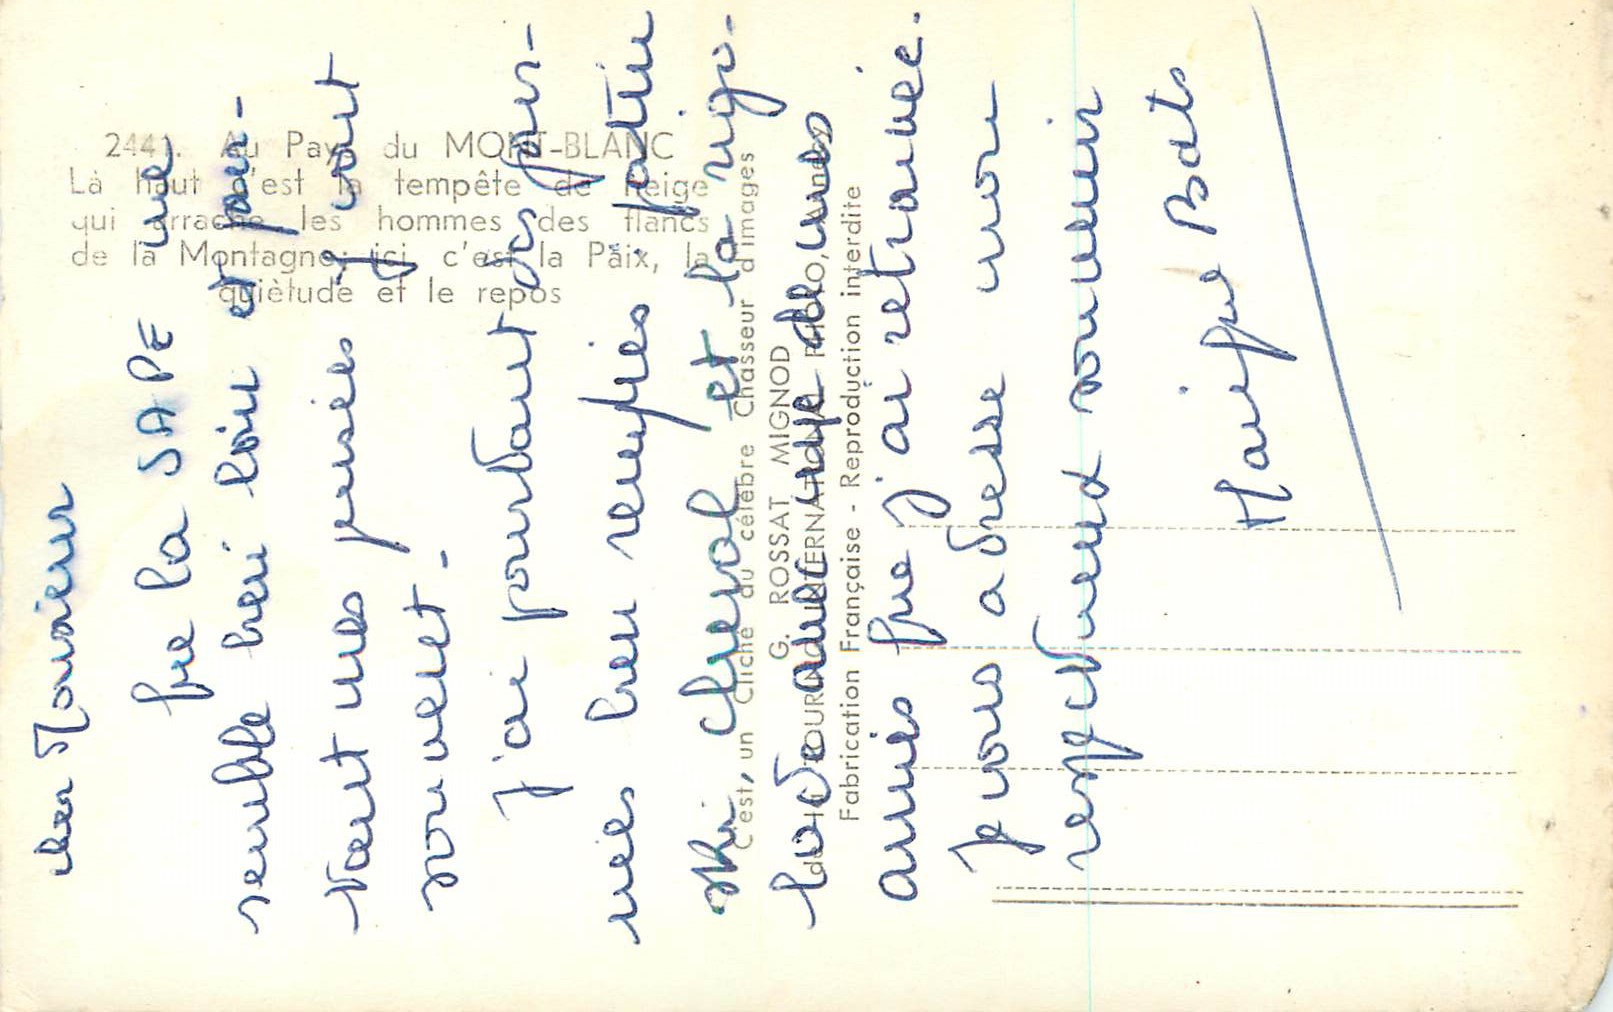 2441. Au Pays du MONT-BLANC
Là haut c'est la tempête de neige
qui arrache les hommes des flancs
de la Montagne; ici c'est la Paix, la
quiètude et le repos
C'est, un Cliché du célèbre Chasseur d'images
G. ROSSAT MIGNOD
Fabrication Française - Reproduction interdite
cher Monsieur
que la SAPE me
semble hei loin et pour-
tant mes pensées y sont
souvent -
J'ai pourtant des jour-
nées bien remplies. patin
ski cheval et la rigo-
lade avec
amies que j'ai retrouvée.
Je vous adresse mon
respectueux souvenir
Bats